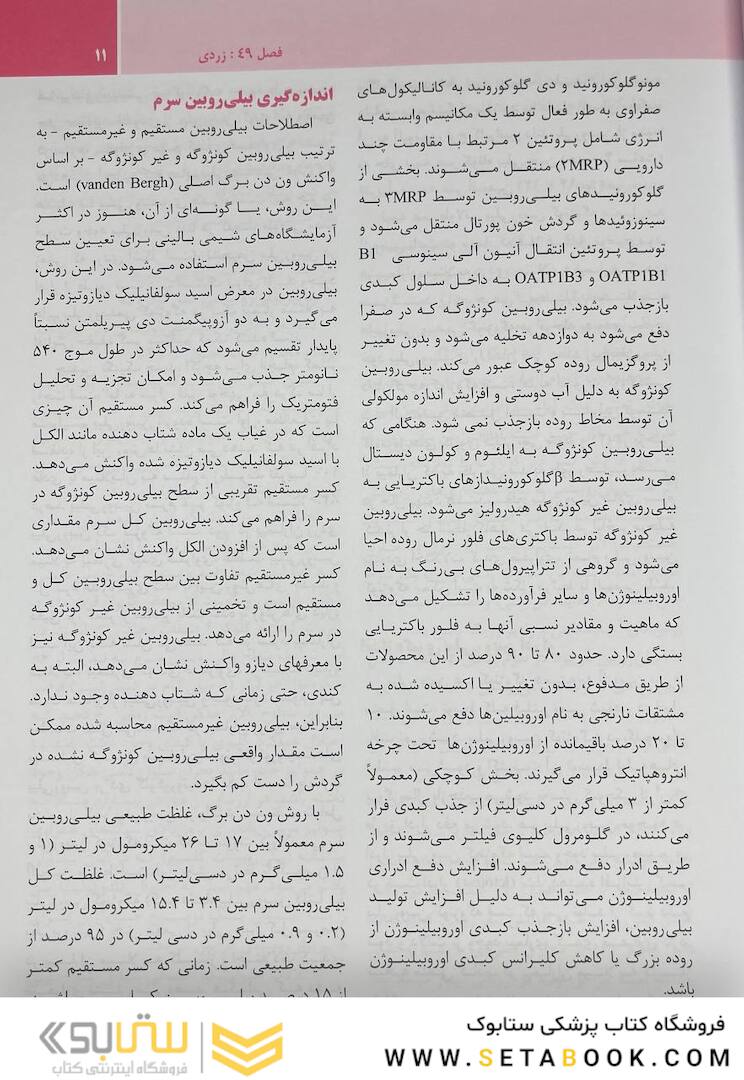 فصل ۴۹ : زردی
۱۱
مونوگلوکورونید و دی گلوکورونید به کانالیکول‌های
صفراوی به طور فعال توسط یک مکانیسم وابسته به
انرژی شامل پروتئین ۲ مرتبط با مقاومت چند
دارویی (۲MRP) منتقل می‌شوند. بخشی از
گلوکورونیدهای بیلی‌روبین توسط ۳MRP به
سینوزوئیدها و گردش خون پورتال منتقل می‌شود و
توسط پروتئین انتقال آنیون آلی سینوسی B1
OATP1B1 و OATP1B3 به داخل سلول کبدی
بازجذب می‌شود. بیلی‌روبین کونژوگه که در صفرا
دفع می‌شود به دوازدهه تخلیه می‌شود و بدون تغییر
از پروگزیمال روده کوچک عبور می‌کند. بیلی‌روبین
کونژوگه به دلیل آب دوستی و افزایش اندازه مولکولی
آن توسط مخاط روده بازجذب نمی شود. هنگامی که
بیلی‌روبین کونژوگه به ایلئوم و کولون دیستال
می‌رسد، توسط βگلوکورونیدازهای باکتریایی به
بیلی‌روبین غیر کونژوگه هیدرولیز می‌شود. بیلی‌روبین
غیر کونژوگه توسط باکتری‌های فلور نرمال روده احیا
می‌شود و گروهی از تتراپیرول‌های بی‌رنگ به نام
اوروبیلینوژن‌ها و سایر فرآورده‌ها را تشکیل می‌دهد
که ماهیت و مقادیر نسبی آنها به فلور باکتریایی
بستگی دارد. حدود ۸۰ تا ۹۰ درصد از این محصولات
از طریق مدفوع، بدون تغییر یا اکسیده شده به
مشتقات نارنجی به نام اوروبیلین‌ها دفع می‌شوند. ۱۰
تا ۲۰ درصد باقیمانده از اوروبیلینوژن‌ها تحت چرخه
انتروهپاتیک قرار می‌گیرند. بخش کوچکی (معمولاً
کمتر از ۳ میلی گرم در دسی‌لیتر) از جذب کبدی فرار
می‌کنند، در گلومرول کلیوی فیلتر می‌شوند و از
طریق ادرار دفع می‌شوند. افزایش دفع ادراری
اوروبیلینوژن می‌تواند به دلیل افزایش تولید
بیلی‌روبین، افزایش بازجذب کبدی اوروبیلینوژن از
روده بزرگ یا کاهش کلیرانس کبدی اوروبیلینوژن
باشد.
اندازه‌گیری بیلی‌روبین سرم
اصطلاحات بیلی‌روبین مستقیم و غیرمستقیم - به
ترتیب بیلی‌روبین کونژوگه و غیر کونژوگه - بر اساس
واکنش ون دن برگ اصلی (vanden Bergh) است.
این روش، یا گونه‌ای از آن، هنوز در اکثر
آزمایشگاه‌های شیمی بالینی برای تعیین سطح
بیلی‌روبین سرم استفاده می‌شود. در این روش،
بیلی‌روبین در معرض اسید سولفانیلیک دیازوتیزه قرار
می گیرد و به دو آزوپیگمنت دی پیریلمتن نسبتاً
پایدار تقسیم می‌شود که حداکثر در طول موج ۵۴۰
نانومتر جذب می‌شود و امکان تجزیه و تحلیل
فتومتریک را فراهم می‌کند. کسر مستقیم آن چیزی
است که در غیاب یک ماده شتاب دهنده مانند الکل
با اسید سولفانیلیک دیازوتیزه شده واکنش می‌دهد.
کسر مستقیم تقریبی از سطح بیلی‌روبین کونژوگه در
سرم را فراهم می‌کند. بیلی‌روبین کل سرم مقداری
است که پس از افزودن الکل واکنش نشان می‌دهد.
کسر غیرمستقیم تفاوت بین سطح بیلی‌روبین کل و
مستقیم است و تخمینی از بیلی‌روبین غیر کونژوگه
در سرم را ارائه می‌دهد. بیلی‌روبین غیر کونژوگه نیز
با معرفهای دیازو واکنش نشان می‌دهد، البته به
کندی، حتی زمانی که شتاب دهنده وجود ندارد.
بنابراین، بیلی‌روبین غیرمستقیم محاسبه شده ممکن
است مقدار واقعی بیلی‌روبین کونژوگه نشده در
گردش را دست کم بگیرد.
با روش ون دن برگ، غلظت طبیعی بیلی‌روبین
سرم معمولاً بین ۱۷ تا ۲۶ میکرومول در لیتر (۱ و
۱.۵ میلی گرم در دسی‌لیتر) است. غلظت کل
بیلی‌روبین سرم بین ۳.۴ تا ۱۵.۴ میکرومول در لیتر
(۰.۲ و ۰.۹ میلی گرم در دسی لیتر) در ۹۵ درصد از
جمعیت طبیعی است. زمانی که کسر مستقیم کمتر
از ۱۵ درصد
فروشگاه کتاب پزشکی ستابوک
WWW.SETABOOK.COM
ستابوک
فروشگاه اینترنتی کتاب